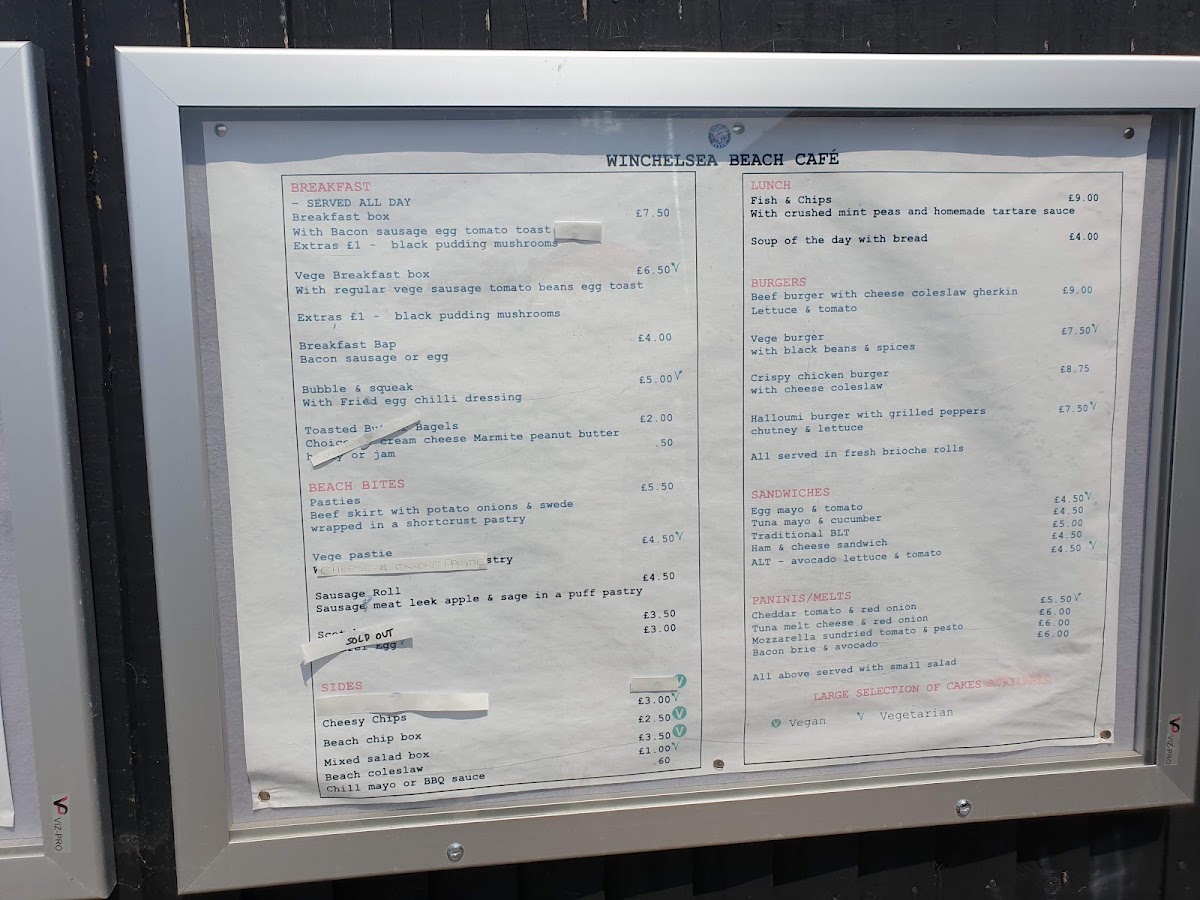 WINCHELSEA BEACH CAFÉ
BREAKFAST
- SERVED ALL DAY
Breakfast box £7.50
With Bacon sausage egg tomato toast
Extras £1 - black pudding mushrooms
Vege Breakfast box £6.50 V
With regular vege sausage tomato beans egg toast
Extras £1 - black pudding mushrooms
Breakfast Bap £4.00
Bacon sausage or egg
Bubble & squeak £5.00 V
With Fried egg chilli dressing
Toasted Bagels £2.00
cream cheese Marmite peanut butter .50
or jam
BEACH BITES
Pasties £5.50
Beef skirt with potato onions & swede
wrapped in a shortcrust pastry
Vege pastie £4.50 V
CHEESE & ONION
Sausage Roll £4.50
Sausage meat leek apple & sage in a puff pastry
£3.50
SOLD OUT
Egg £3.00
SIDES
V
Cheesy Chips £3.00 V
Beach chip box £2.50 V
Mixed salad box £3.50 V
Beach coleslaw £1.00 V
Chill mayo or BBQ sauce .60
LUNCH
Fish & Chips £9.00
With crushed mint peas and homemade tartare sauce
Soup of the day with bread £4.00
BURGERS
Beef burger with cheese coleslaw gherkin £9.00
Lettuce & tomato
Vege burger £7.50 V
with black beans & spices
Crispy chicken burger £8.75
with cheese coleslaw
Halloumi burger with grilled peppers £7.50 V
chutney & lettuce
All served in fresh brioche rolls
SANDWICHES
Egg mayo & tomato £4.50 V
Tuna mayo & cucumber £4.50
Traditional BLT £5.00
Ham & cheese sandwich £4.50
ALT - avocado lettuce & tomato £4.50 V
PANINIS/MELTS
Cheddar tomato & red onion £5.50 V
Tuna melt cheese & red onion £6.00
Mozzarella sundried tomato & pesto £6.00
Bacon brie & avocado £6.00
All above served with small salad
LARGE SELECTION OF CAKES AVAILABLE
V Vegan V Vegetarian
VIZ-PRO
VIZ-PRO